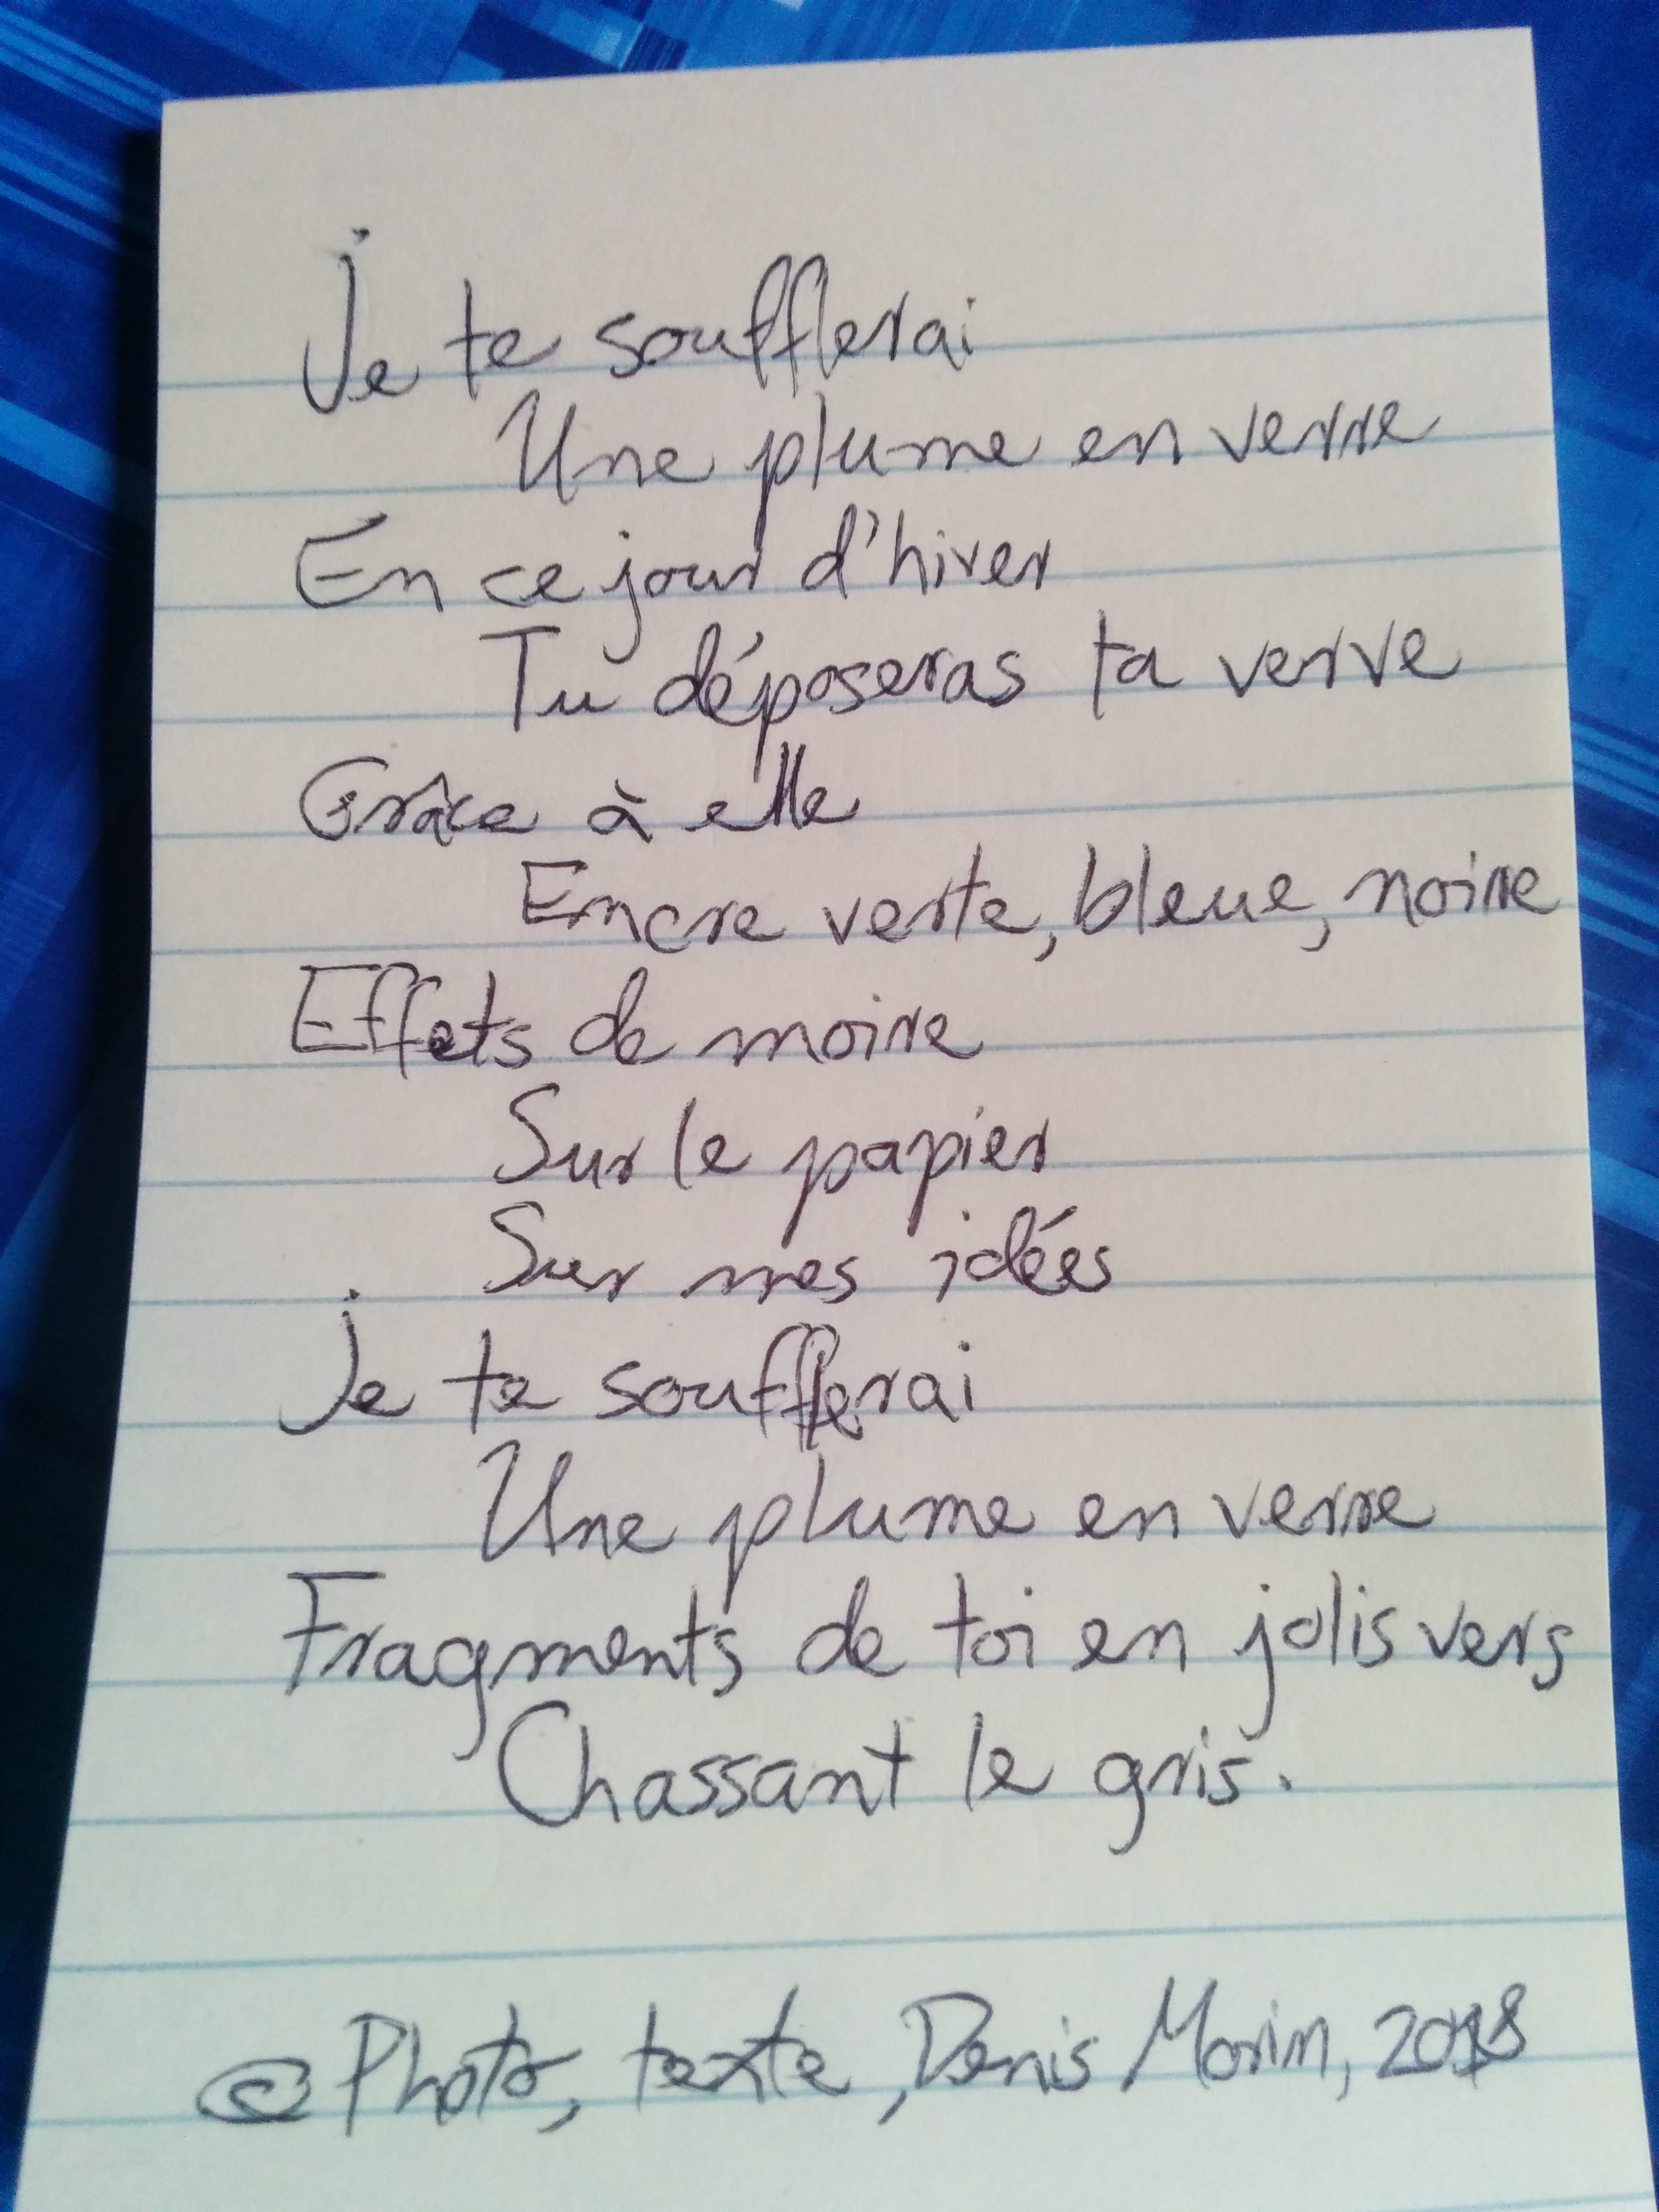 Je te soufflerai
Une plume en verre
En ce jour d'hiver
Tu déposeras ta verve
Grâce à elle
Encre verte, bleue, noire
Effets de moire
Sur le papier
Sur mes idées
Je te soufflerai
Une plume en verre
Fragments de toi en jolis vers
Chassant le gris.
© Photo, texte, Denis Morin, 2018